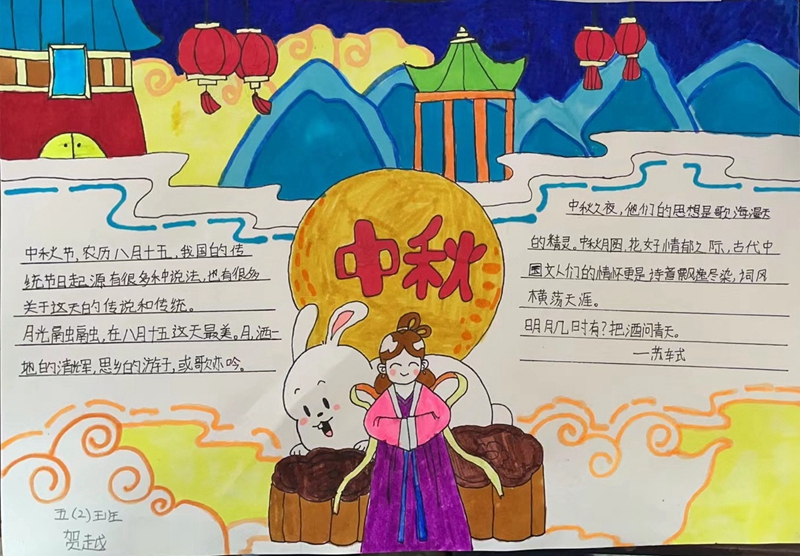 中秋
中秋之节，农历八月十五，我国的传
统节日起源有很多种说法，也有很多
关于这天的传说和传统。
月光融融，在八月十五这天最美。月，洒一
地的清辉，思乡的游子，或歌亦吟。
中秋之夜，他们的思想是歌海漫天
的精灵。中秋月圆，花好情郁之际，古代中
国文人们的情怀更是诗首飘逸尽染，词风
横荡天涯。
明月几时有？把酒问青天。
—苏轼
五（2）班
贺越